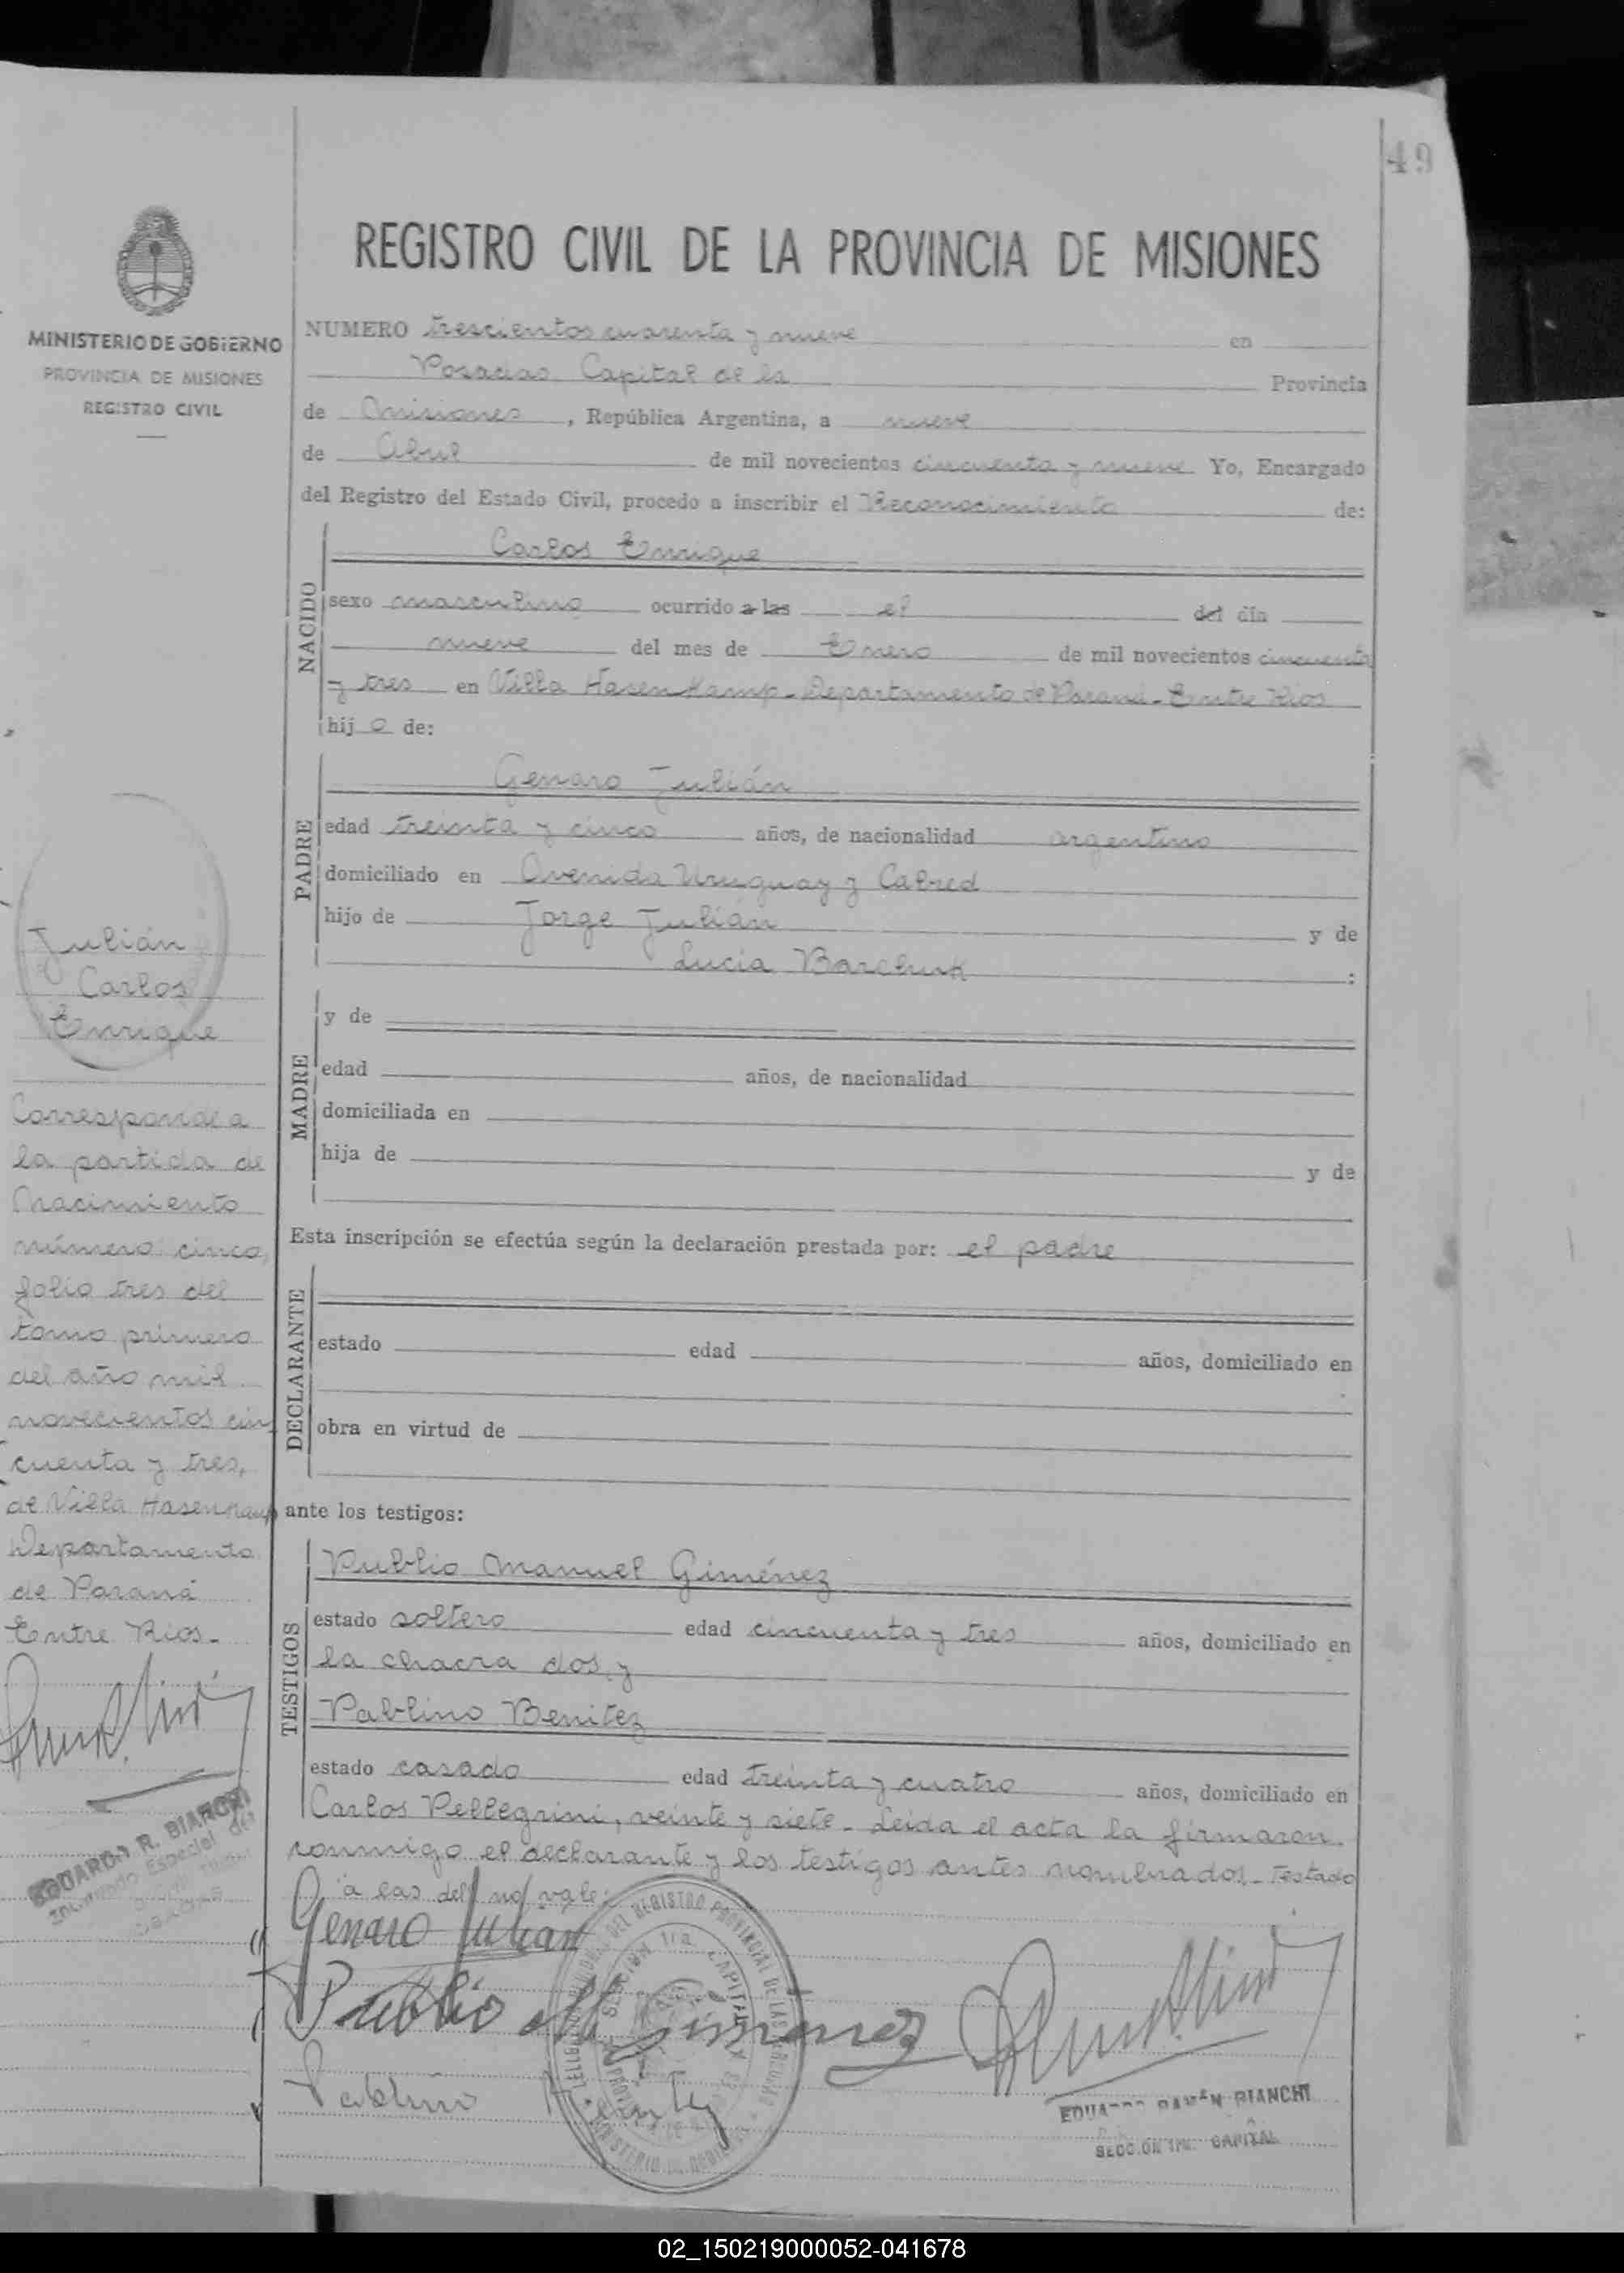 49
REGISTRO CIVIL DE LA PROVINCIA DE MISIONES
MINISTERIO DE GOBIERNO
PROVINCIA DE MISIONES
REGISTRO CIVIL
NUMERO trescientos cuarenta y nueve en
Posadas Capital de la Provincia
de Misiones, República Argentina, a nueve
de Abril de mil novecientos cincuenta y nueve Yo, Encargado
del Registro del Estado Civil, procedo a inscribir el Reconocimiento de:
NACIDO
Carlos Enrique
sexo masculino ocurrido a las el del día
nueve del mes de Enero de mil novecientos cincuenta
y tres en Villa Hasenkamp - Departamento de Paraná - Entre Rios
hijo de:
PADRE
Genaro Julián
edad treinta y cinco años, de nacionalidad argentino
domiciliado en Avenida Uruguay y Cabred
hijo de Jorge Julián y de
Lucia Barchuk :
MADRE
y de
edad años, de nacionalidad
domiciliada en
hija de y de
Esta inscripción se efectúa según la declaración prestada por: el padre
DECLARANTE
estado edad años, domiciliado en
obra en virtud de
ante los testigos:
TESTIGOS
Publio Manuel Giménez
estado soltero edad cincuenta y tres años, domiciliado en
la chacra dos, y
Pablino Benitez
estado casado edad treinta y cuatro años, domiciliado en
Carlos Pellegrini, veinte y siete - Leida el acta la firmaron
conmigo el declarante y los testigos antes nombrados - Testado
a las del no vale:
Genaro Julian
Publio M Gimenez
Pablino Benitez
EDUARDO RAMÓN BIANCHI
SECCIÓN 1RA. CAPITAL
Julián
Carlos
Enrique
Corresponde a
la partida de
Nacimiento
número cinco,
folio tres del
tomo primero
del año mil
novecientos cin
cuenta y tres,
de Villa Hasenkamp
Departamento
de Paraná
Entre Rios -
EDUARDO R. BIANCHI
Encargado Especial del
02_150219000052-041678